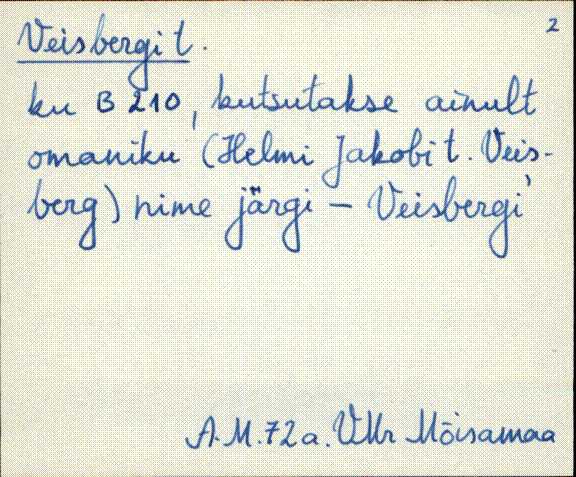 Veisbergi t. 2
ku B 210, kutsutakse ainult
omaniku (Helmi Jakobi t. Veis-
berg) nime järgi – Veisbergi'
A.M. 72 a. VMr Mõisamaa